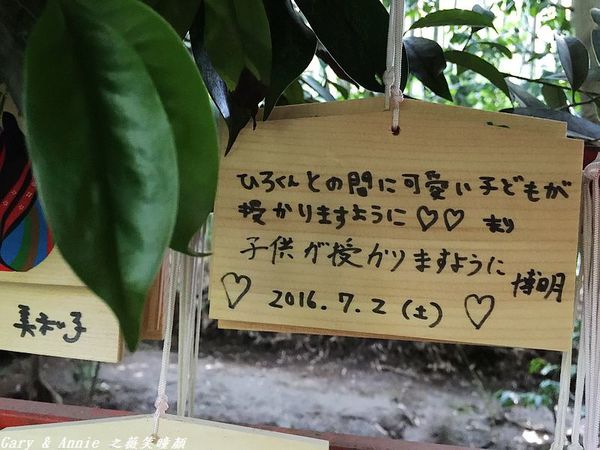 ひろくんとの間に可愛い子どもが
授かりますように♡♡
子供が授かりますように
博明
♡ 2016.7.2(土) ♡
美和子
Gary & Annie 之薇笑瞳顏